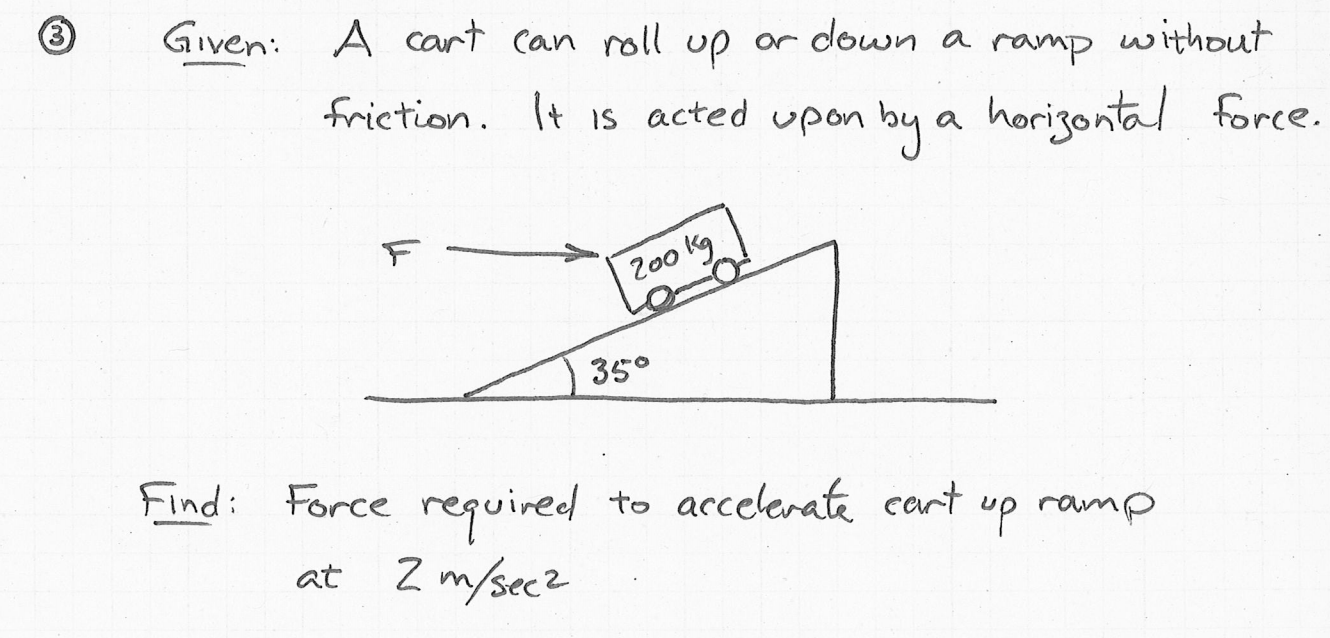 ③ Given: A cart can roll up or down a ramp without
friction. It is acted upon by a horizontal force.
F
200 kg
35°
Find: Force required to accelerate cart up ramp
at 2 m/sec²